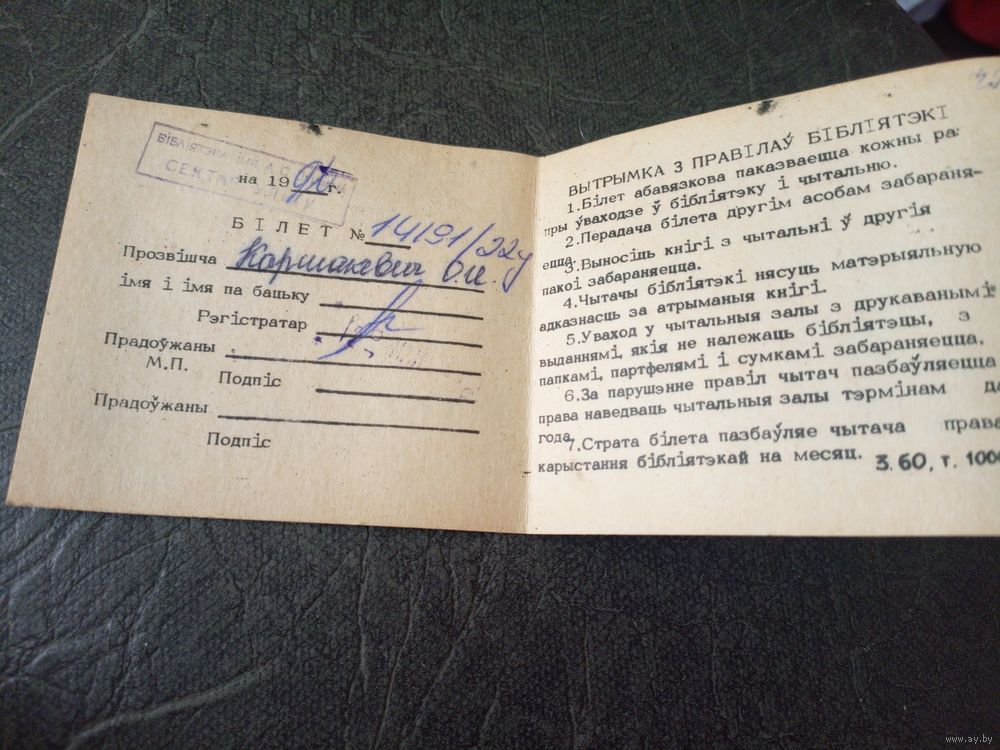 БІБЛІЯТЭКА ІМЯ
СЕКТАР
на 19 90 г.
БІЛЕТ № 14191/22ч
Прозвішча Каршакевич О.И.
імя і імя па бацьку
Рэгістратар
Прадоўжаны
М.П. Подпіс
Прадоўжаны
Подпіс
ВЫТРЫМКА З ПРАВІЛАЎ БІБЛІЯТЭКІ
1.Білет абавязкова паказваецца кожны раз
пры ўваходзе ў бібліятэку і чытальню.
2.Перадача білета другім асобам забараня-
ецца.
3.Выносіць кнігі з чытальні ў другія
пакоі забараняецца.
4.Чытачы бібліятэкі нясуць матэрыяльную
адказнасць за атрыманыя кнігі.
5.Уваход у чытальныя залы з друкаванымі
выданнямі, якія не належаць бібліятэцы, з
папкамі, партфелямі і сумкамі забараняецца.
6.За парушэнне правіл чытач пазбаўляецца
права наведваць чытальныя залы тэрмінам да
года.
7.Страта білета пазбаўляе чытача права
карыстання бібліятэкай на месяц.
З. 60, т. 1000
www.ay.by